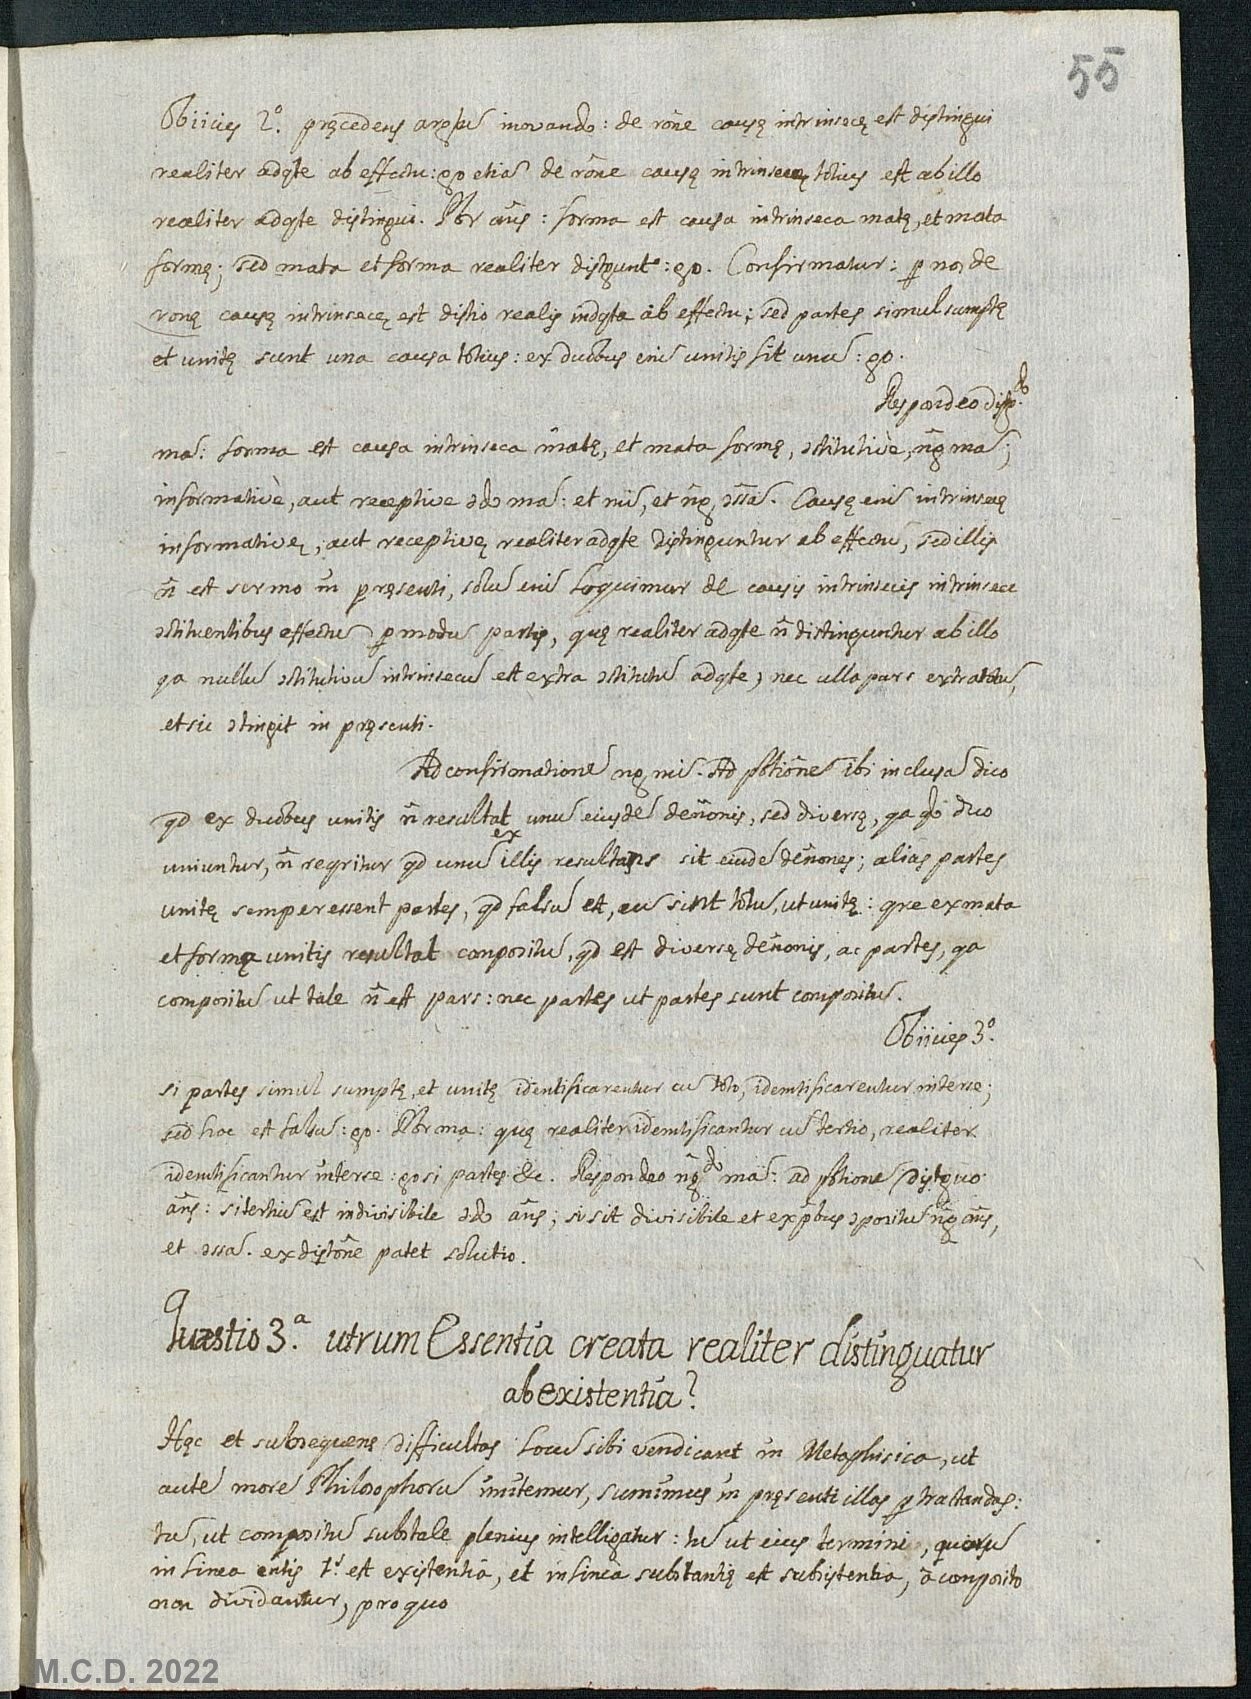 55
Obiicies 2º. pręcedens argũ innovando: de rõne causę intrinsecę est distingui
realiter adqte ab effectu: ego etiã de rõne causę intrinsecę totius est ab illo
realiter adqte distingui. Pbr ãns: forma est causa intrinseca matę, et mata
formę; sed mata et forma realiter distgunt.ͬ: ego. Confirmatur: p nos de
ronę causę intrinsecę est distio realis indqta ab effectu; sed partes simul sumptę
et unitę sunt una causa totius: ex duobus enĩ unitis fit unũ: ego.
Respondeo distg.do
mã: forma est causa intrinseca matę, et mata formę, ɔstitutivè, ñg mã;
informativè, aut receptive ɔdo mã: et mĩ, et ñg ɔssã. Causę enĩ intrinsecę
informativę, aut receptivę realiter adqte distinguntur ab effectu, sed illis
ñ est sermo in pręsenti, solũ enĩ loquimur de causis intrinsecis intrinsece
ɔstituentibus effectũ p modũ partis, quę realiter adqte ñ distinguntur ab illo
qa nullũ ɔstitutivũ intrinsecũ est extra ɔstitutũ adqte, nec ulla pars extra totũ,
et sic ɔtingit in pręsenti.
Ad confirmationẽ ng mĩ. Ad pbtiõnẽ ibi inclusã dico
qd ex duobus unitis ñ resultat unũ eiusdẽ deñonis, sed diversę, qa qdo duo
uniuntur, ñ reqritur qd unũ ex illis resultans sit eiusdẽ deñones; alias partes
unitę semper essent partes, qd falsũ est, cũ sint totũ, ut unitę: qre ex mata
et forma unitis resultat compositũ, qd est diversę deñonis, ac partes, qa
compositũ ut tale ñ est pars: nec partes ut partes sunt compositũ.
Obiicies 3º.
si partes simul sumptę, et unitę identificarentur cũ toto, identificarentur inter se;
sed hoc est falsũ: ego. Pbr ma: quę realiter identificantur cũ tertio, realiter
identificantur inter se: ego si partes &c. Respondeo ñg.do mã: ad pbtionẽ distguo
ãns: si tertiũ est indivisibile ɔdo ãns; si sit divisibile et ex ptbus ɔpositũ ñg ãns,
et ɔssã. ex distiõne patet solutio.
Quæstio 3.ª utrum Essentia creata realiter distinguatur
ab existentia?
Hęc et subsequens difficultas locũ sibi vendicant in Metaphisica, ut
autẽ morẽ Philosophorũ imitemur, sumimus in pręsenti illas p tractandas:
tũ, ut compositũ substale plenius intelligatur: tũ ut eius termini, quorũ
in linea entis 1.s est existentia, et in linea substantię est subsistentia, à composito
non dividantur, pro quo
M.C.D. 2022